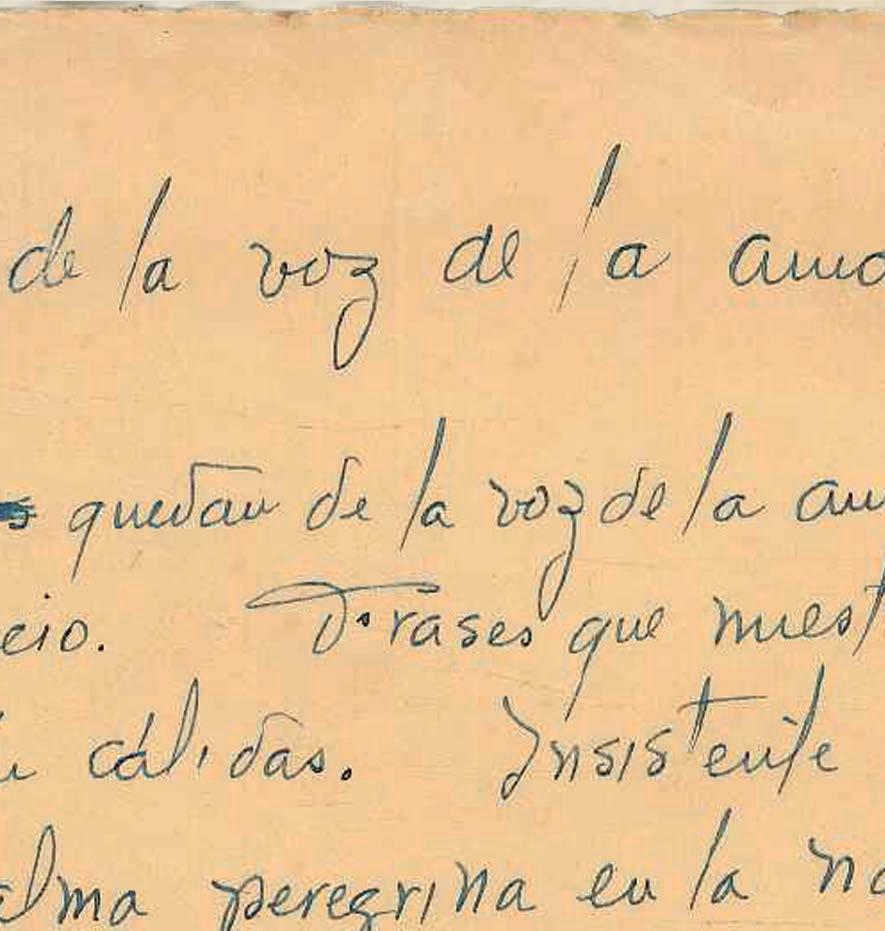 de la voz de la ama
quedan de la voz de la am
cio. Frases que nuest
cálidas. Insistente
alma peregrina en la no